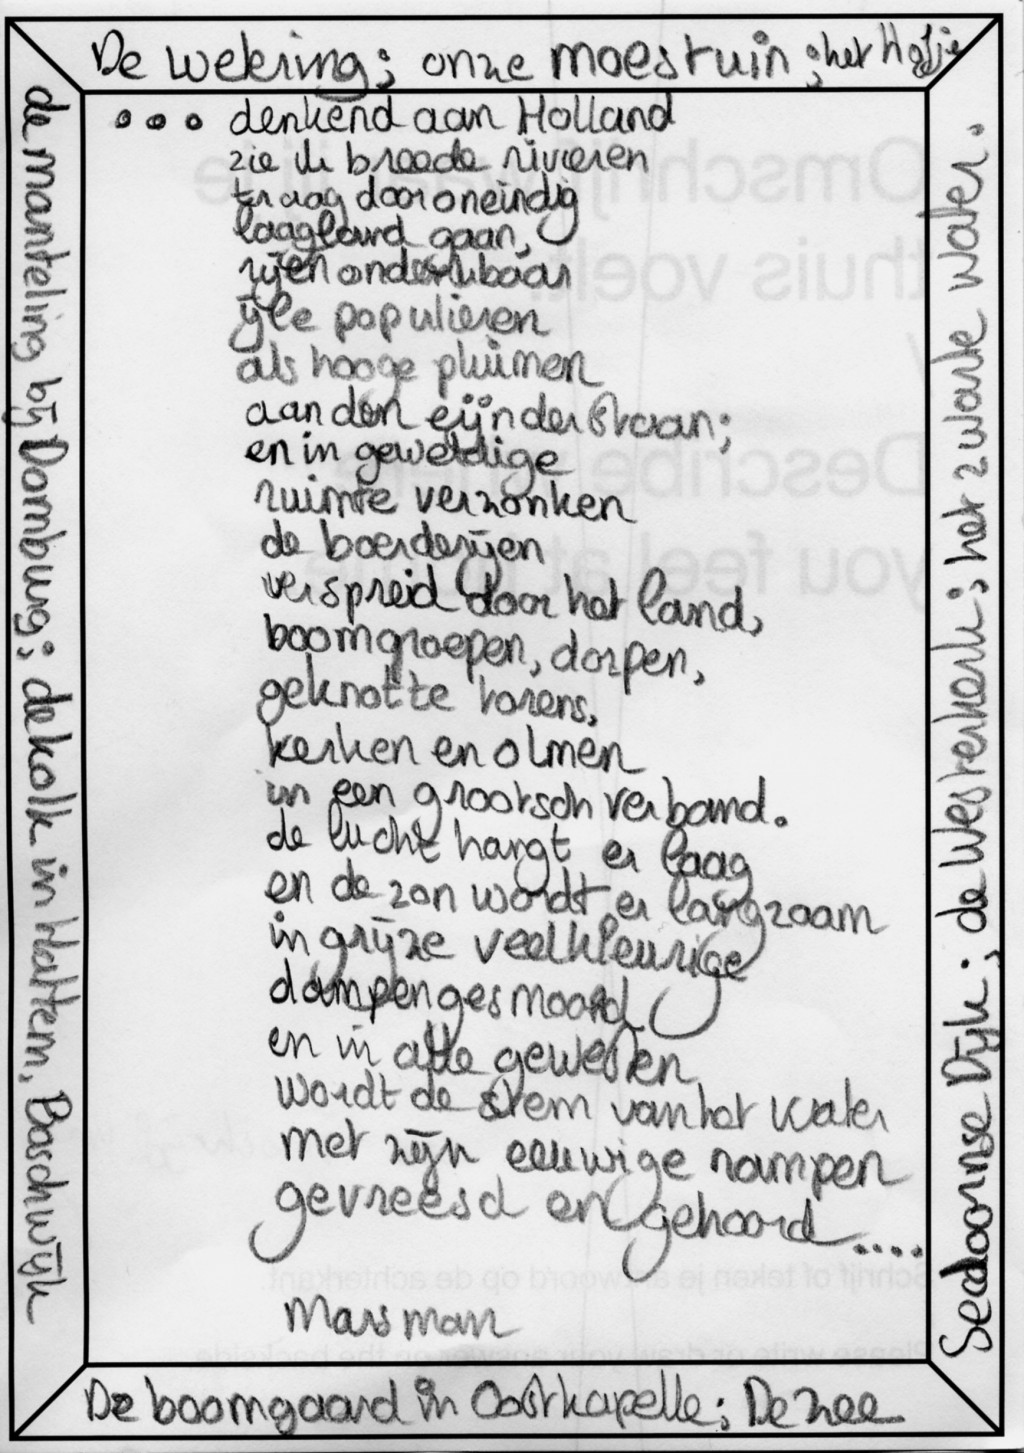 De wekering; onze moestuin; het Hofje
... denkend aan Holland
zie ik breede rivieren
traag door oneindig
laagland gaan,
rijen ondenkbaar
ijle populieren
als hooge pluimen
aan den eijnder staan;
en in geweldige
ruimte verzonken
de boerderijen
verspreid door het land,
boomgroepen, dorpen,
geknotte torens,
kerken en olmen
in een grootsch verband.
de lucht hangt er laag
en de zon wordt er langzaam
in grijze veelkleurige
dampen gesmoord
en in alle gewesten
wordt de stem van het water
met zijn eeuwige rampen
gevreesd en gehoord....
Marsman
De boomgaard in Oostkapelle; De zee
de manteling bij Domburg; de kolk in Hattem, Baschwijk
Sexdoornse Dijk; de Westerkerk; het zwarte water.
Omschrijf waar jij je
thuis voelt.
/
Describe where
you feel at home
Schrijf of teken je antwoord op de achterkant.
Please write or draw your answer on the backside